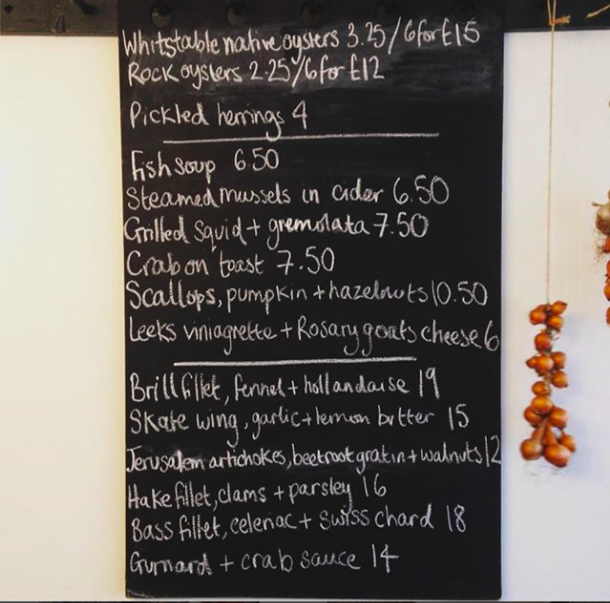 Whitstable native oysters 3.25/6 for £15
Rock oysters 2.25/6 for £12
Pickled herrings 4
Fish soup 6.50
Steamed mussels in cider 6.50
Grilled Squid + gremolata 7.50
Crab on toast 7.50
Scallops, pumpkin + hazelnuts 10.50
Leeks viniagrette + Rosary goats cheese 6
Brill fillet, fennel + hollandaise 19
Skate wing, garlic + lemon butter 15
Jerusalem artichokes, beetroot gratin + walnuts 12
Hake fillet, clams + parsley 16
Bass fillet, celeriac + swiss chard 18
Gurnard + crab sauce 14